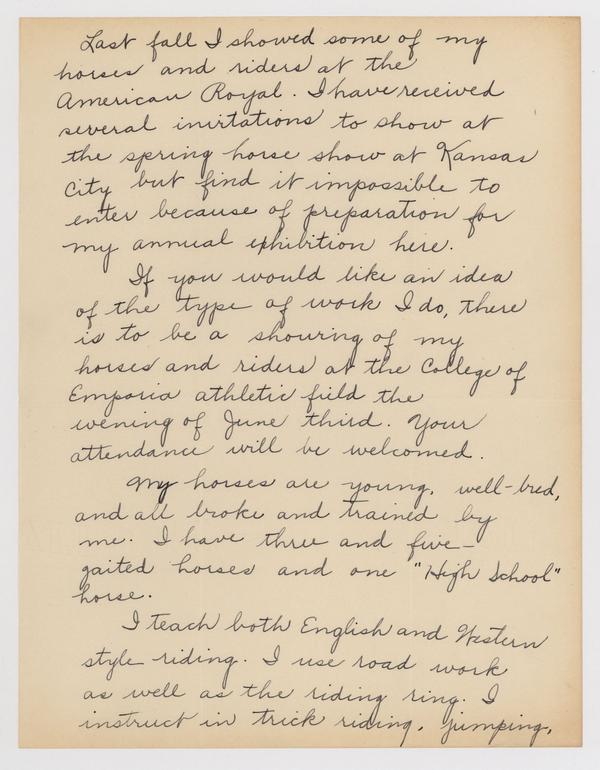 Last fall I showed some of my
horses and riders at the
American Royal. I have received
several invitations to show at
the spring horse show at Kansas
City but find it impossible to
enter because of preparation for
my annual exhibition here.
If you would like an idea
of the type of work I do, there
is to be a showing of my
horses and riders at the College of
Emporia athletic field the
evening of June third. Your
attendance will be welcomed.
My horses are young, well-bred,
and all broke and trained by
me. I have three and five-
gaited horses and one "High School"
horse.
I teach both English and Western
style riding. I use road work
as well as the riding ring. I
instruct in trick riding, jumping,